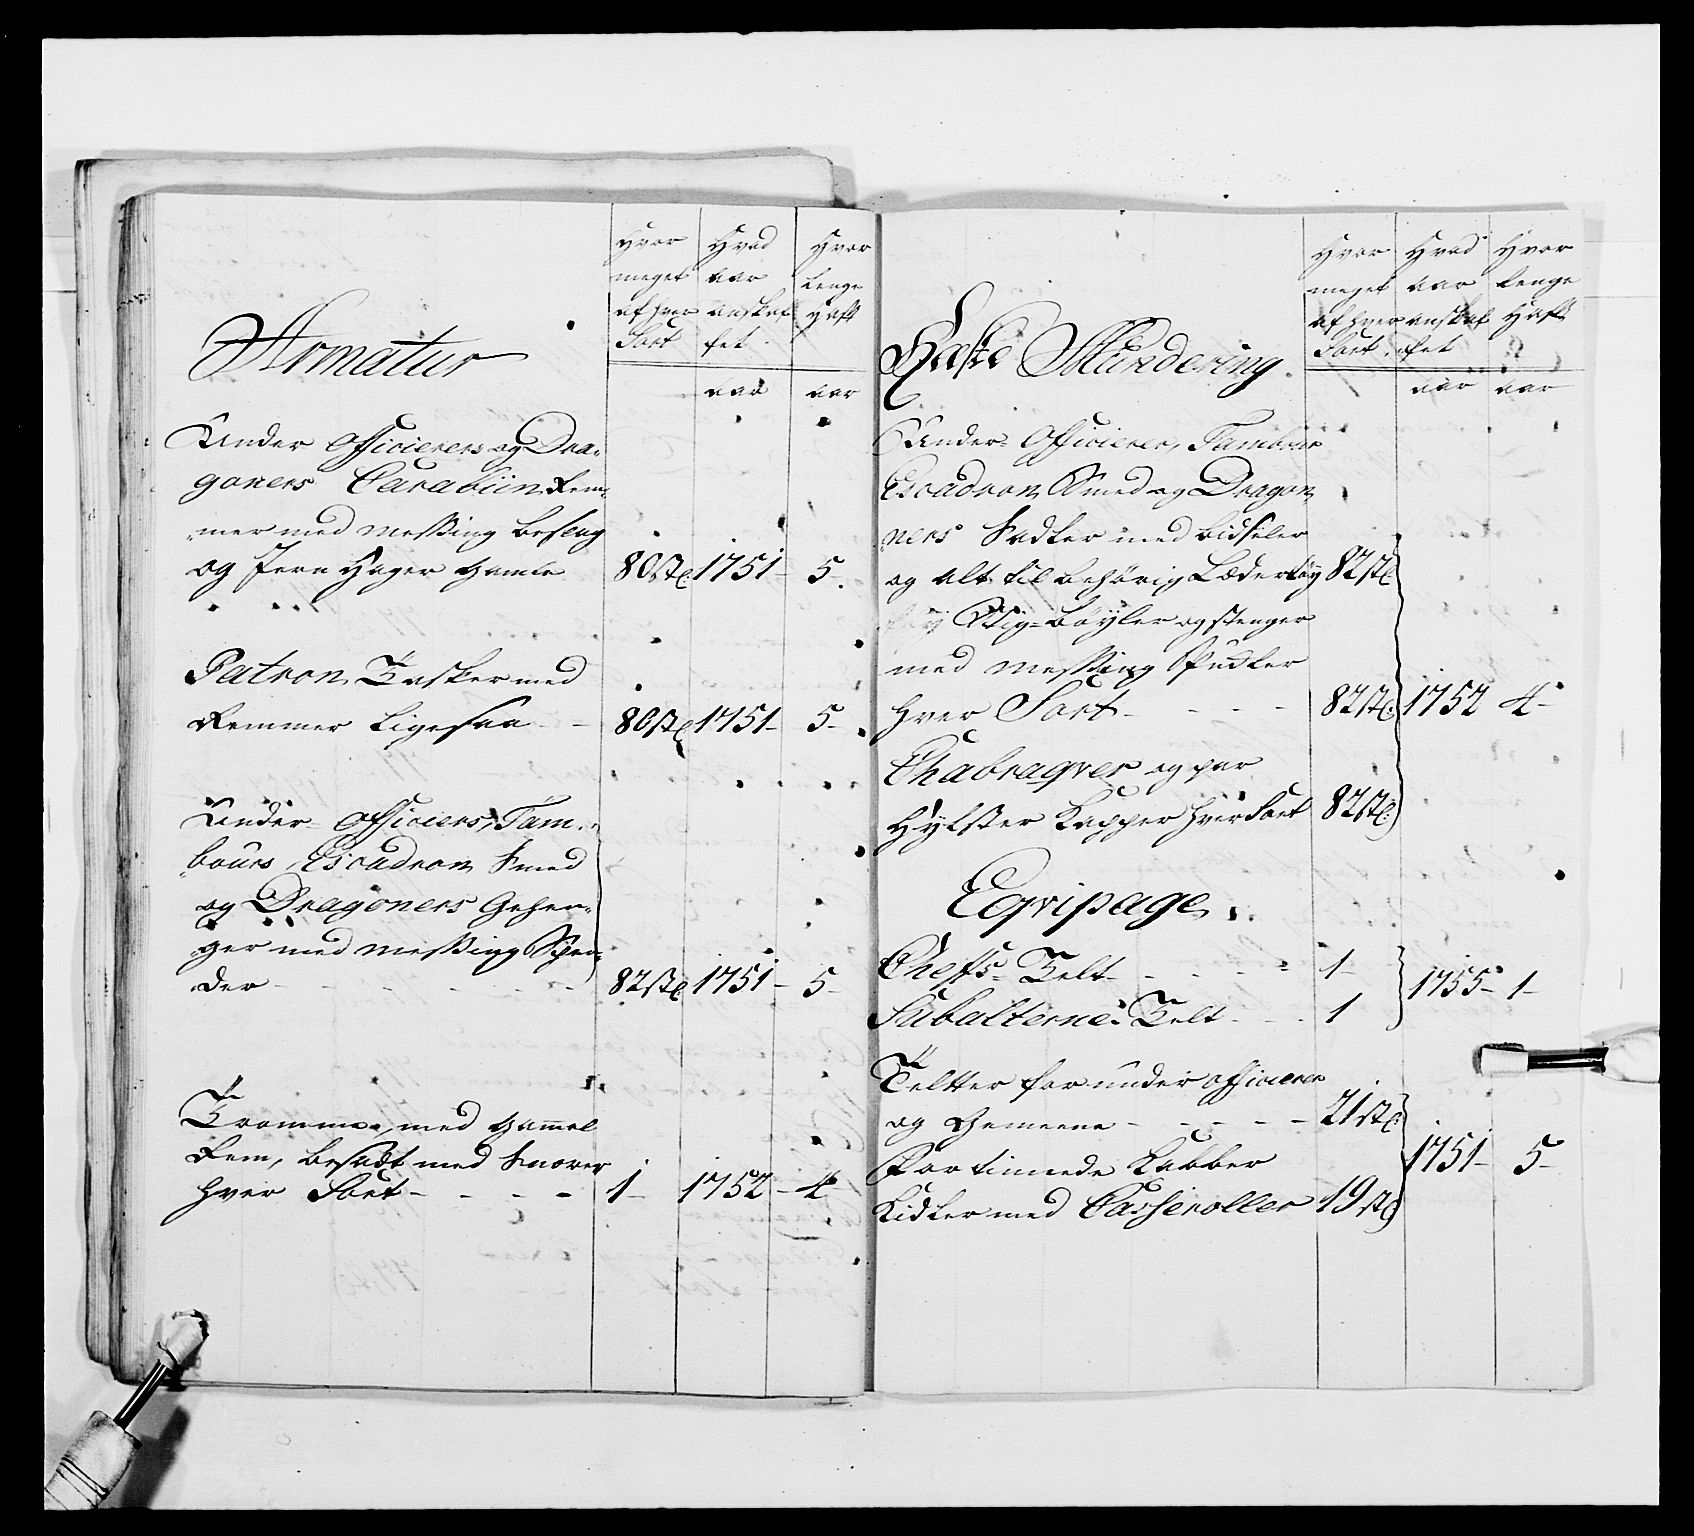 Hvor
meget
af hver
Sort
Hvad
aar
anskaf
fet
Hvor
lenge
Haft
Armatur
aar
aar
Under Officierers og Dra-
goners Carabiin Rem-
mer med Messing beslag
og Jern Hager gamle 80 stk 1751 - 5 -
Patron Tasker med
Remmer ligesaa - - 80 stk 1751 - 5 -
Under Officiers, Tam-
bours, Escadron Smed
og Dragoners Gehen-
ger med messing Spen-
der - - - - - - 82 stk 1751 - 5 -
Tromme, med gammel
Rem, besadt med Snorer
hver Sort - - - - 1 - 1752 - 4 -
Hvor
meget
af hver
Sort
Hvad
aar
anskaf
fet
Hvor
lenge
Haft
Heste Mundering
aar
aar
Under Officierer, Tambour
Escadron Smed og Dragon-
ners Sadler med bidseler
og alt til behörig Lædertöy 82 stk
Stig-böyler og stenger
med messing Pukler
hver Sort - - - - 82 stk 1752 4 -
Chabraqver og par
Hylster Kapper hver Sort 82 stk
Eqvipage
Chefs Telt - - - - 1 -
1755 - 1 -
Subalterne Telt - - - 1
Teltter for under officierer
og Gemeene - - - - 21 stk
1751 - 5 -
Fortinnede Kabber
Kidler med Casseroller 19 stk